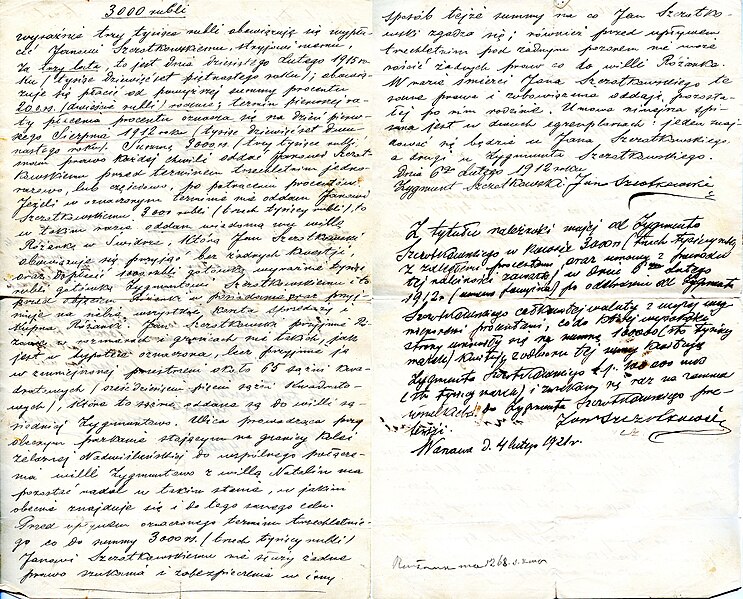 3000 rubli
wyraźnie trzy tysiące rubli obowiązuję się wypła-
cić Janowi Szczotkowskiemu, stryjowi memu,
za trzy lata, to jest dnia dziesiątego Lutego 1915 ro-
ku (tysiąc dziewięćset piętnastego roku); obowią-
zuję się płacić od powyższej summy procentu
200 rs. (dwieście rubli) rocznie; termin pierwszej ra-
ty płacenia procentu oznacza się na dzień pierw-
szego Sierpnia 1912 roku (tysiąc dziewięćset dwu-
nastego roku). Summę 3000 rs. (trzy tysiące rubli
mam prawo każdej chwili oddać Janowi Szczot-
kowskiemu przed terminem trzechletnim jedno-
razowo, lub częściowo, po potrąceniu procentów.
Jeżeli w oznaczonym terminie nie oddam Janowi
Szczotkowskiemu 3000 rubli (trzech tysięcy rubli), to
w takim razie oddam wiadomą mu willę
Różanka w Świdrze, którą Jan Szczotkowski
obowiązuje się przyjąć bez żadnych kwestji,
oraz dopłacić 1000 rubli gotówką wyraźnie tysiąc
rubli gotówką Zygmuntowi Szczotkowskiemu i to
przed objęciem Różanki w posiadanie oraz przyj-
muje na siebie wszystkie koszta sprzedaży i
kupna Różanki. Jan Szczotkowski przyjmie Ró-
żankę w rozmiarach i granicach nie takich, jak
jest w hypotece oznaczona, lecz przyjmie ją
w zmniejszonej przestrzeni około 65 sążni kwa-
dratowych (sześćdziesięciu pięciu sążni kwadrato-
wych), które to sążnie oddane są do willi są-
siedniej Zygmuntowo. Ulica prowadząca przy
obecnym parkanie stojącym na granicy kolei
żelaznej Nadwiślańskiej do wspólnego połącze-
nia willi Zygmuntowo z willą Natolin ma
pozostać nadal w takim stanie, w jakim
obecnie znajduje się i do tego samego celu.
Przed upływem oznaczonego terminu trzechletnie-
go co do summy 3000 rs. (trzech tysięcy rubli)
Janowi Szczotkowskiemu nie służy żadne
prawo szukania i zabezpieczenia w inny
sposób tejże summy na co Jan Szczotko-
wski zgadza się; również przed upływem
trzechletnim pod żadnym pozorem nie może
rościć żadnych praw co do willi Różanka.
W razie śmierci Jana Szczotkowskiego te
same prawa i zobowiązania oddaję pozosta-
łej po nim rodzinie. Umowa niniejsza spi-
sana jest w dwuch egzemplarzach i jeden znaj-
dować się będzie u Jana Szczotkowskiego
a drugi u Zygmunta Szczotkowskiego.
Dnia 6go Lutego 1912 roku
Zygmunt Szczotkowski Jan Szczotkowski
Z tytułu należności mojej od Zygmunta
Szczotkowskiego w kwocie 3000 rs (trzech tysięcy rubli)
z zaległemi procentami, oraz umowy z powodu
tej należności zawartej w dniu 6go Lutego
1912 r. (umowa powyższa) po odebraniu od Zygmunta
Szczotkowskiego całkowitej waluty z mojej wy-
procentami, co do której wszystkie
strony umówiły się na summę 100000 (sto tysięcy
marek) kwituję z odbioru tej summy
Zygmunta Szczotkowskiego t.j. 100 000 mar
(sto tysięcy marek) i zrzekam się raz na zawsze
do Zygmunta Szczotkowskiego pre-
tensji. Jan Szczotkowski
Warszawa d. 4 lutego 1921 r.
Różanka ma 1268 s. kwadr